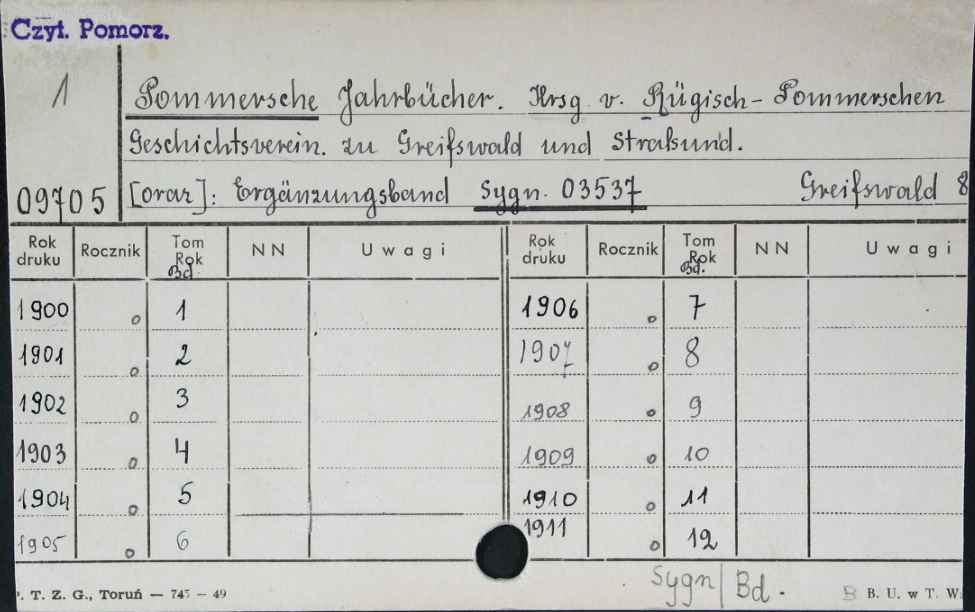 Czyt. Pomorz.
1
Pommersche Jahrbücher. Hrsg. v. Rügisch-Pommerschen
Geschichtsverein. zu Greifswald und Stralsund.
09705 [oraz]: Ergänzungsband Sygn. 03537 Greifswald 8
Rok druku Rocznik Tom Rok Bd. NN Uwagi Rok druku Rocznik Tom Rok Bd. NN Uwagi
1900 o 1 1906 o 7
1901 o 2 1907 o 8
1902 o 3 1908 o 9
1903 o 4 1909 o 10
1904 o 5 1910 o 11
1905 o 6 1911 o 12
Sygn/Bd.
. T. Z. G., Toruń — 745 — 49 B. U. w T. W.